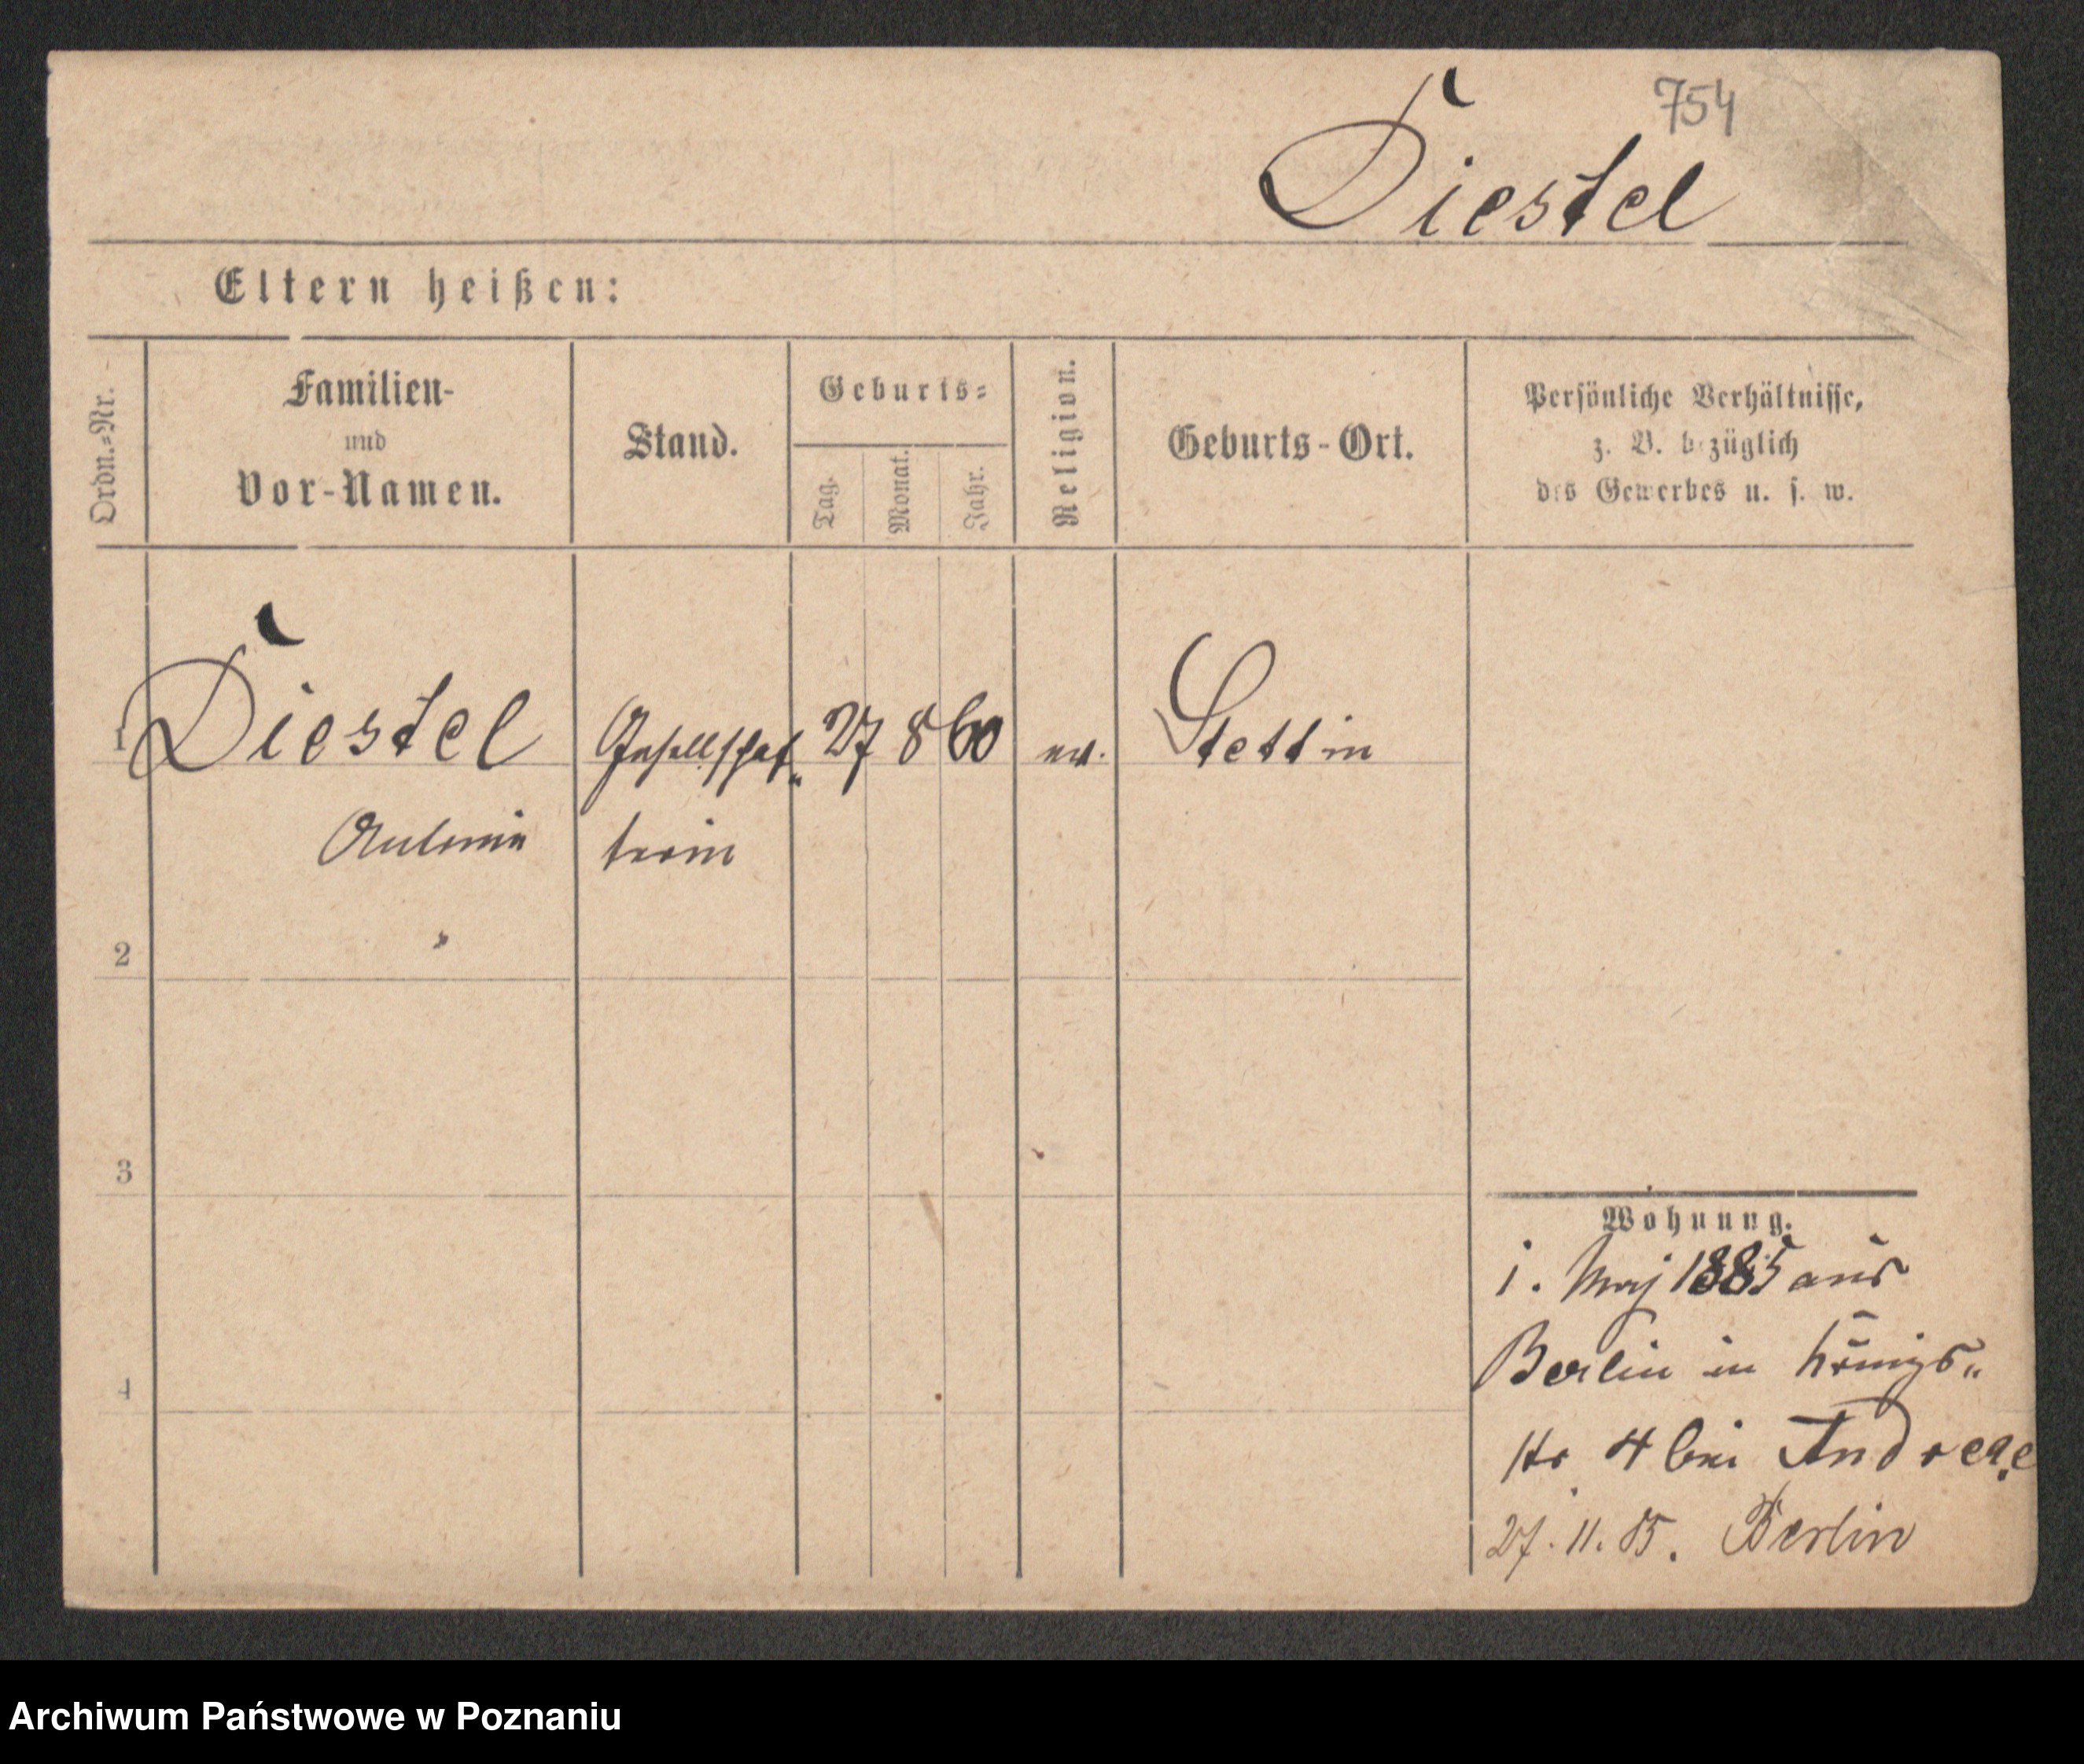 754
Diestel
Eltern heißen:
Ordn.=Nr.
Familien-
und
Vor-Namen.
Stand.
Geburts=
Tag.
Monat.
Jahr.
Religion.
Geburts-Ort.
Persönliche Verhältnisse,
z. B. bezüglich
des Gewerbes u. s. w.
1 Diestel Gesellschaf„ 27 8 60 ev. Stettin
Antonie terin
2
3
4
Wohnung.
1. Maj 1885 aus
Berlin in Königs„
str 4 bei Andreae
27. 11. 85. Berlin
Archiwum Państwowe w Poznaniu